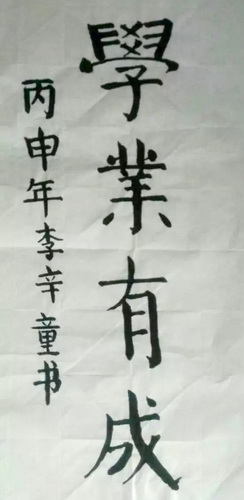 學業有成
丙申年李辛童书